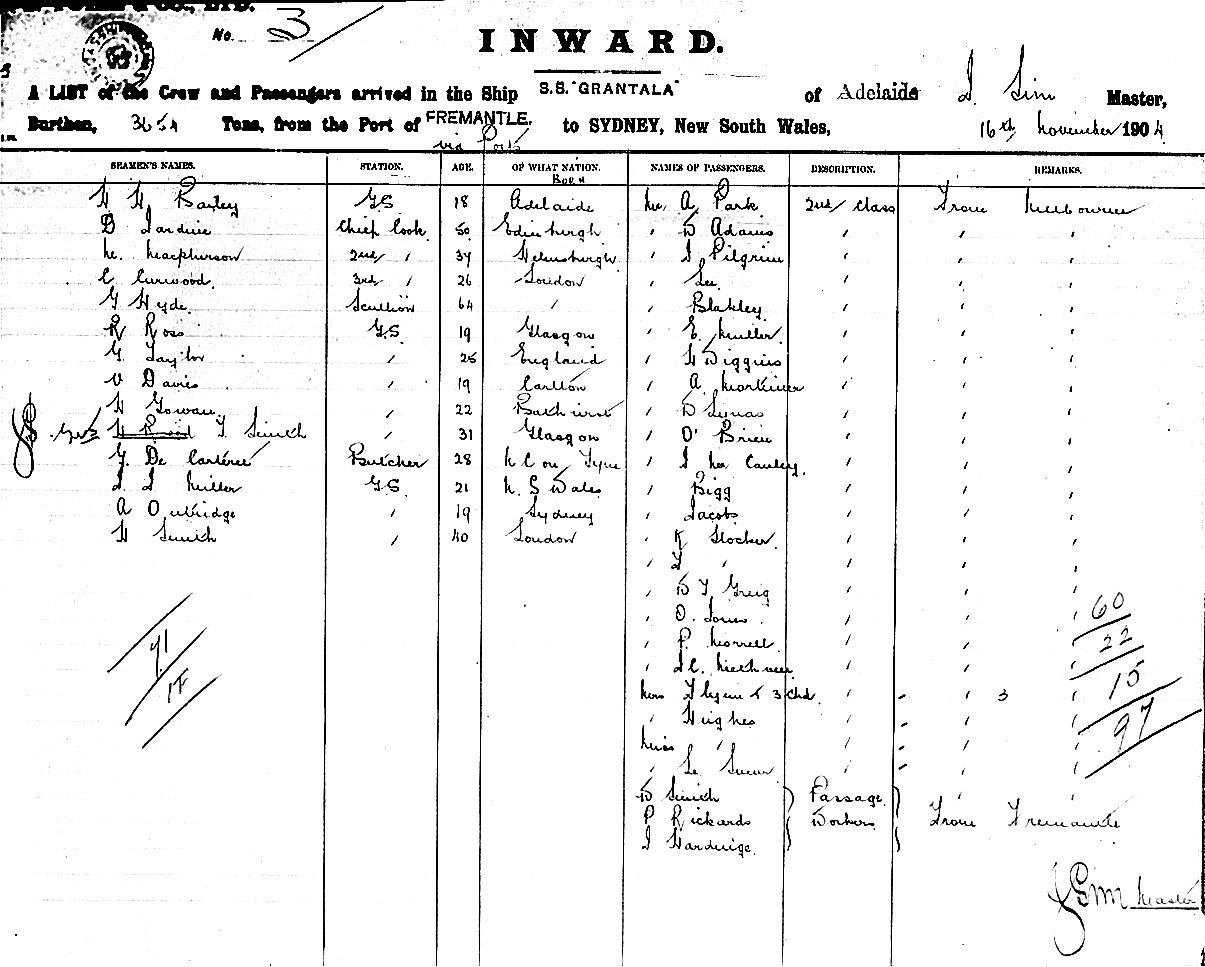 & CO., LTD.
No. 3
INWARD.
A LIST of the Crew and Passengers arrived in the Ship S.S. "GRANTALA" of Adelaide J. Sim Master,
Burthen, 3654 Tons, from the Port of FREMANTLE. to SYDNEY, New South Wales, 16th November 1904
via Ports
SEAMEN'S NAMES. STATION. AGE. OF WHAT NATION. NAMES OF PASSENGERS. DESCRIPTION. REMARKS.
Born
H H Baxley G.S 18 Adelaide Mr A Park 2nd Class From Melbourne
D Jardine Chief Cook 50 Edinburgh " D Adams " " "
M. Macpherson 2nd " 37 Helensburgh " J Pilgrim " " "
C Curwood 3rd " 26 London " Lee " " "
G Hyde Scullion 64 " " Blakley " " "
R Ross G.S. 19 Glasgow " E. Muller " " "
G Taylor " 25 England " H Diggins " " "
V Davis " 19 Carlton " A Mortimer " " "
H Gowan " 22 Bathurst " D Lynas " " "
JS T. Smith " 31 Glasgow " O'Brien " " "
G. De Carteret Butcher 28 N C on Tyne " J McCauley " " "
J J Miller G.S 21 N. S Wales " Bigg " " "
A Outridge " 19 Sydney " Jacobs " " "
H Smith " 40 London " K Stocker " " "
" " " " "
" D J Greig " " "
" O. Jones " " " 60
" P. Morrell " " " 22
" " " " 15
Mrs Flynn & 3 Chd " " 3 " 97
" Hughes " " "
Miss " " " "
" Le Sueur " " "
D Smith Passage
P Rickards Workers From Fremantle
J Hardwige
71
17
J Sim Master